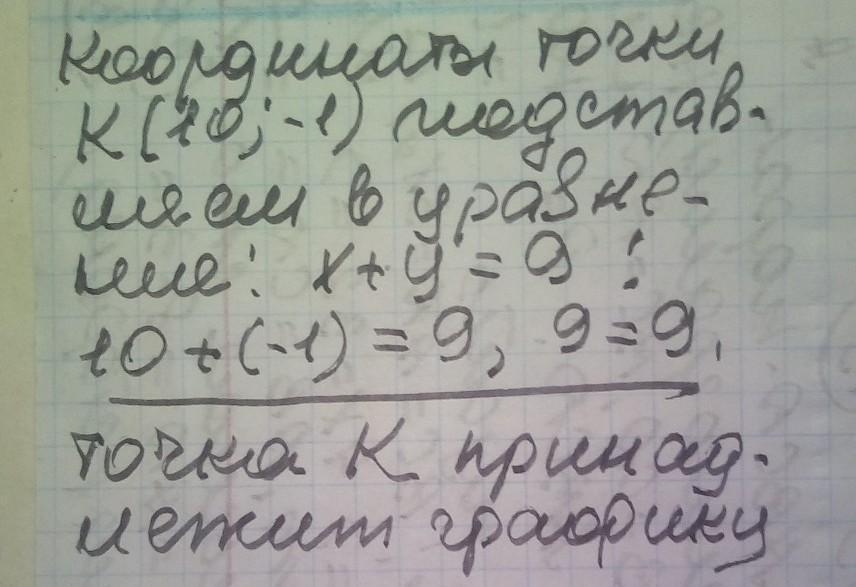 Координаты точки
К(10;-1) подстав-
ляем в уравне-
ние: х+у = 9 :
10+(-1) = 9, 9=9.
точка К принад-
лежит графику